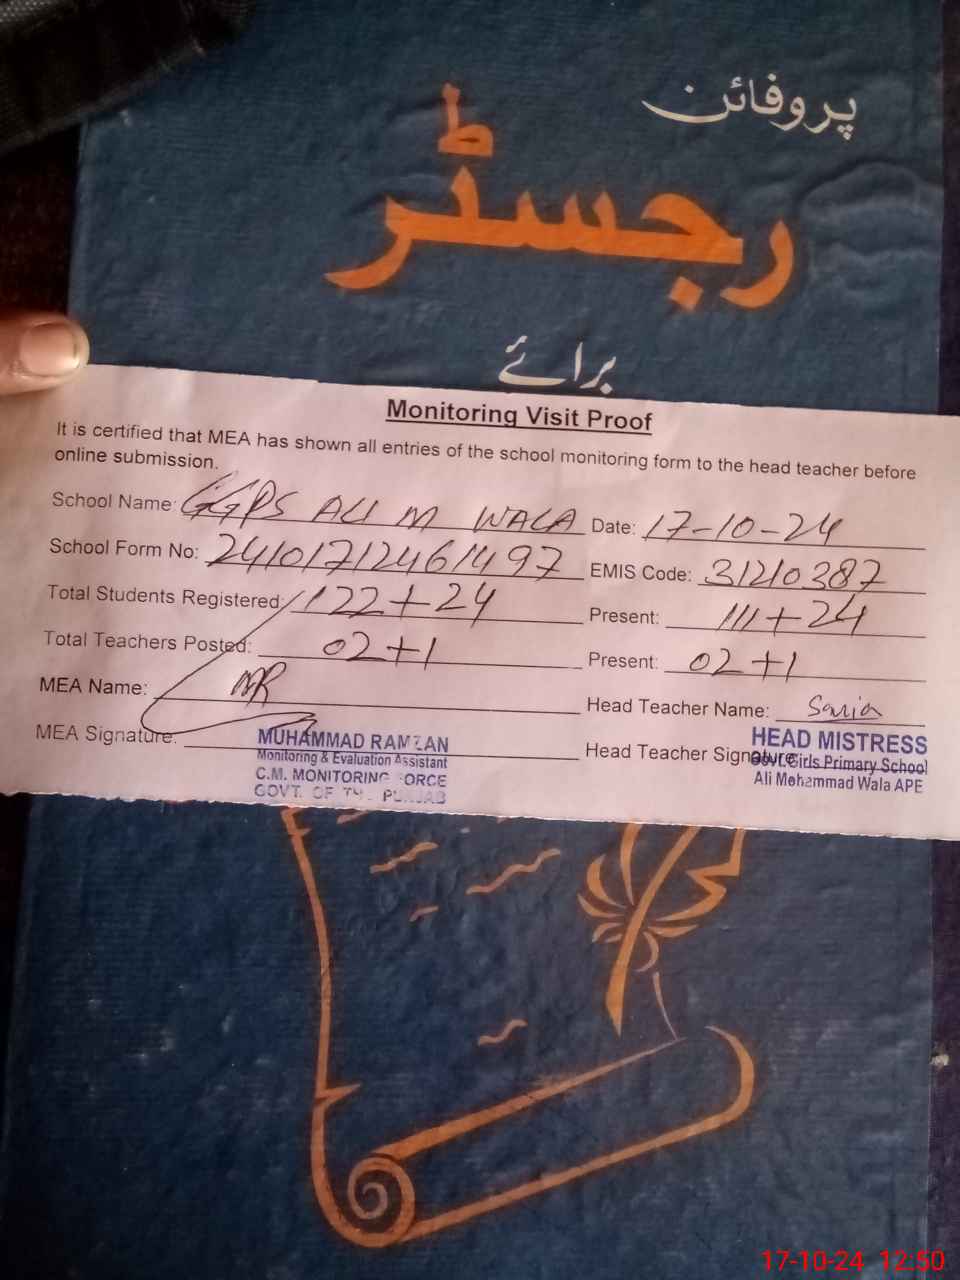 پروفائن
رجسٹر
برائے
Monitoring Visit Proof
It is certified that MEA has shown all entries of the school monitoring form to the head teacher before
online submission.
School Name: GGPS ALI M WALA Date: 17-10-24
School Form No: 24101712461497 EMIS Code: 31210387
Total Students Registered: 122+24 Present: 111+24
Total Teachers Posted: 02+1 Present: 02+1
MEA Name: MR Head Teacher Name:
MEA Signature: Head Teacher Signature
MUHAMMAD RAMZAN
Monitoring & Evaluation Assistant
C.M. MONITORING FORCE
GOVT. OF THE PUNJAB
HEAD MISTRESS
Govt. Girls Primary School
Ali Mohammad Wala APE
17-10-24 12:50